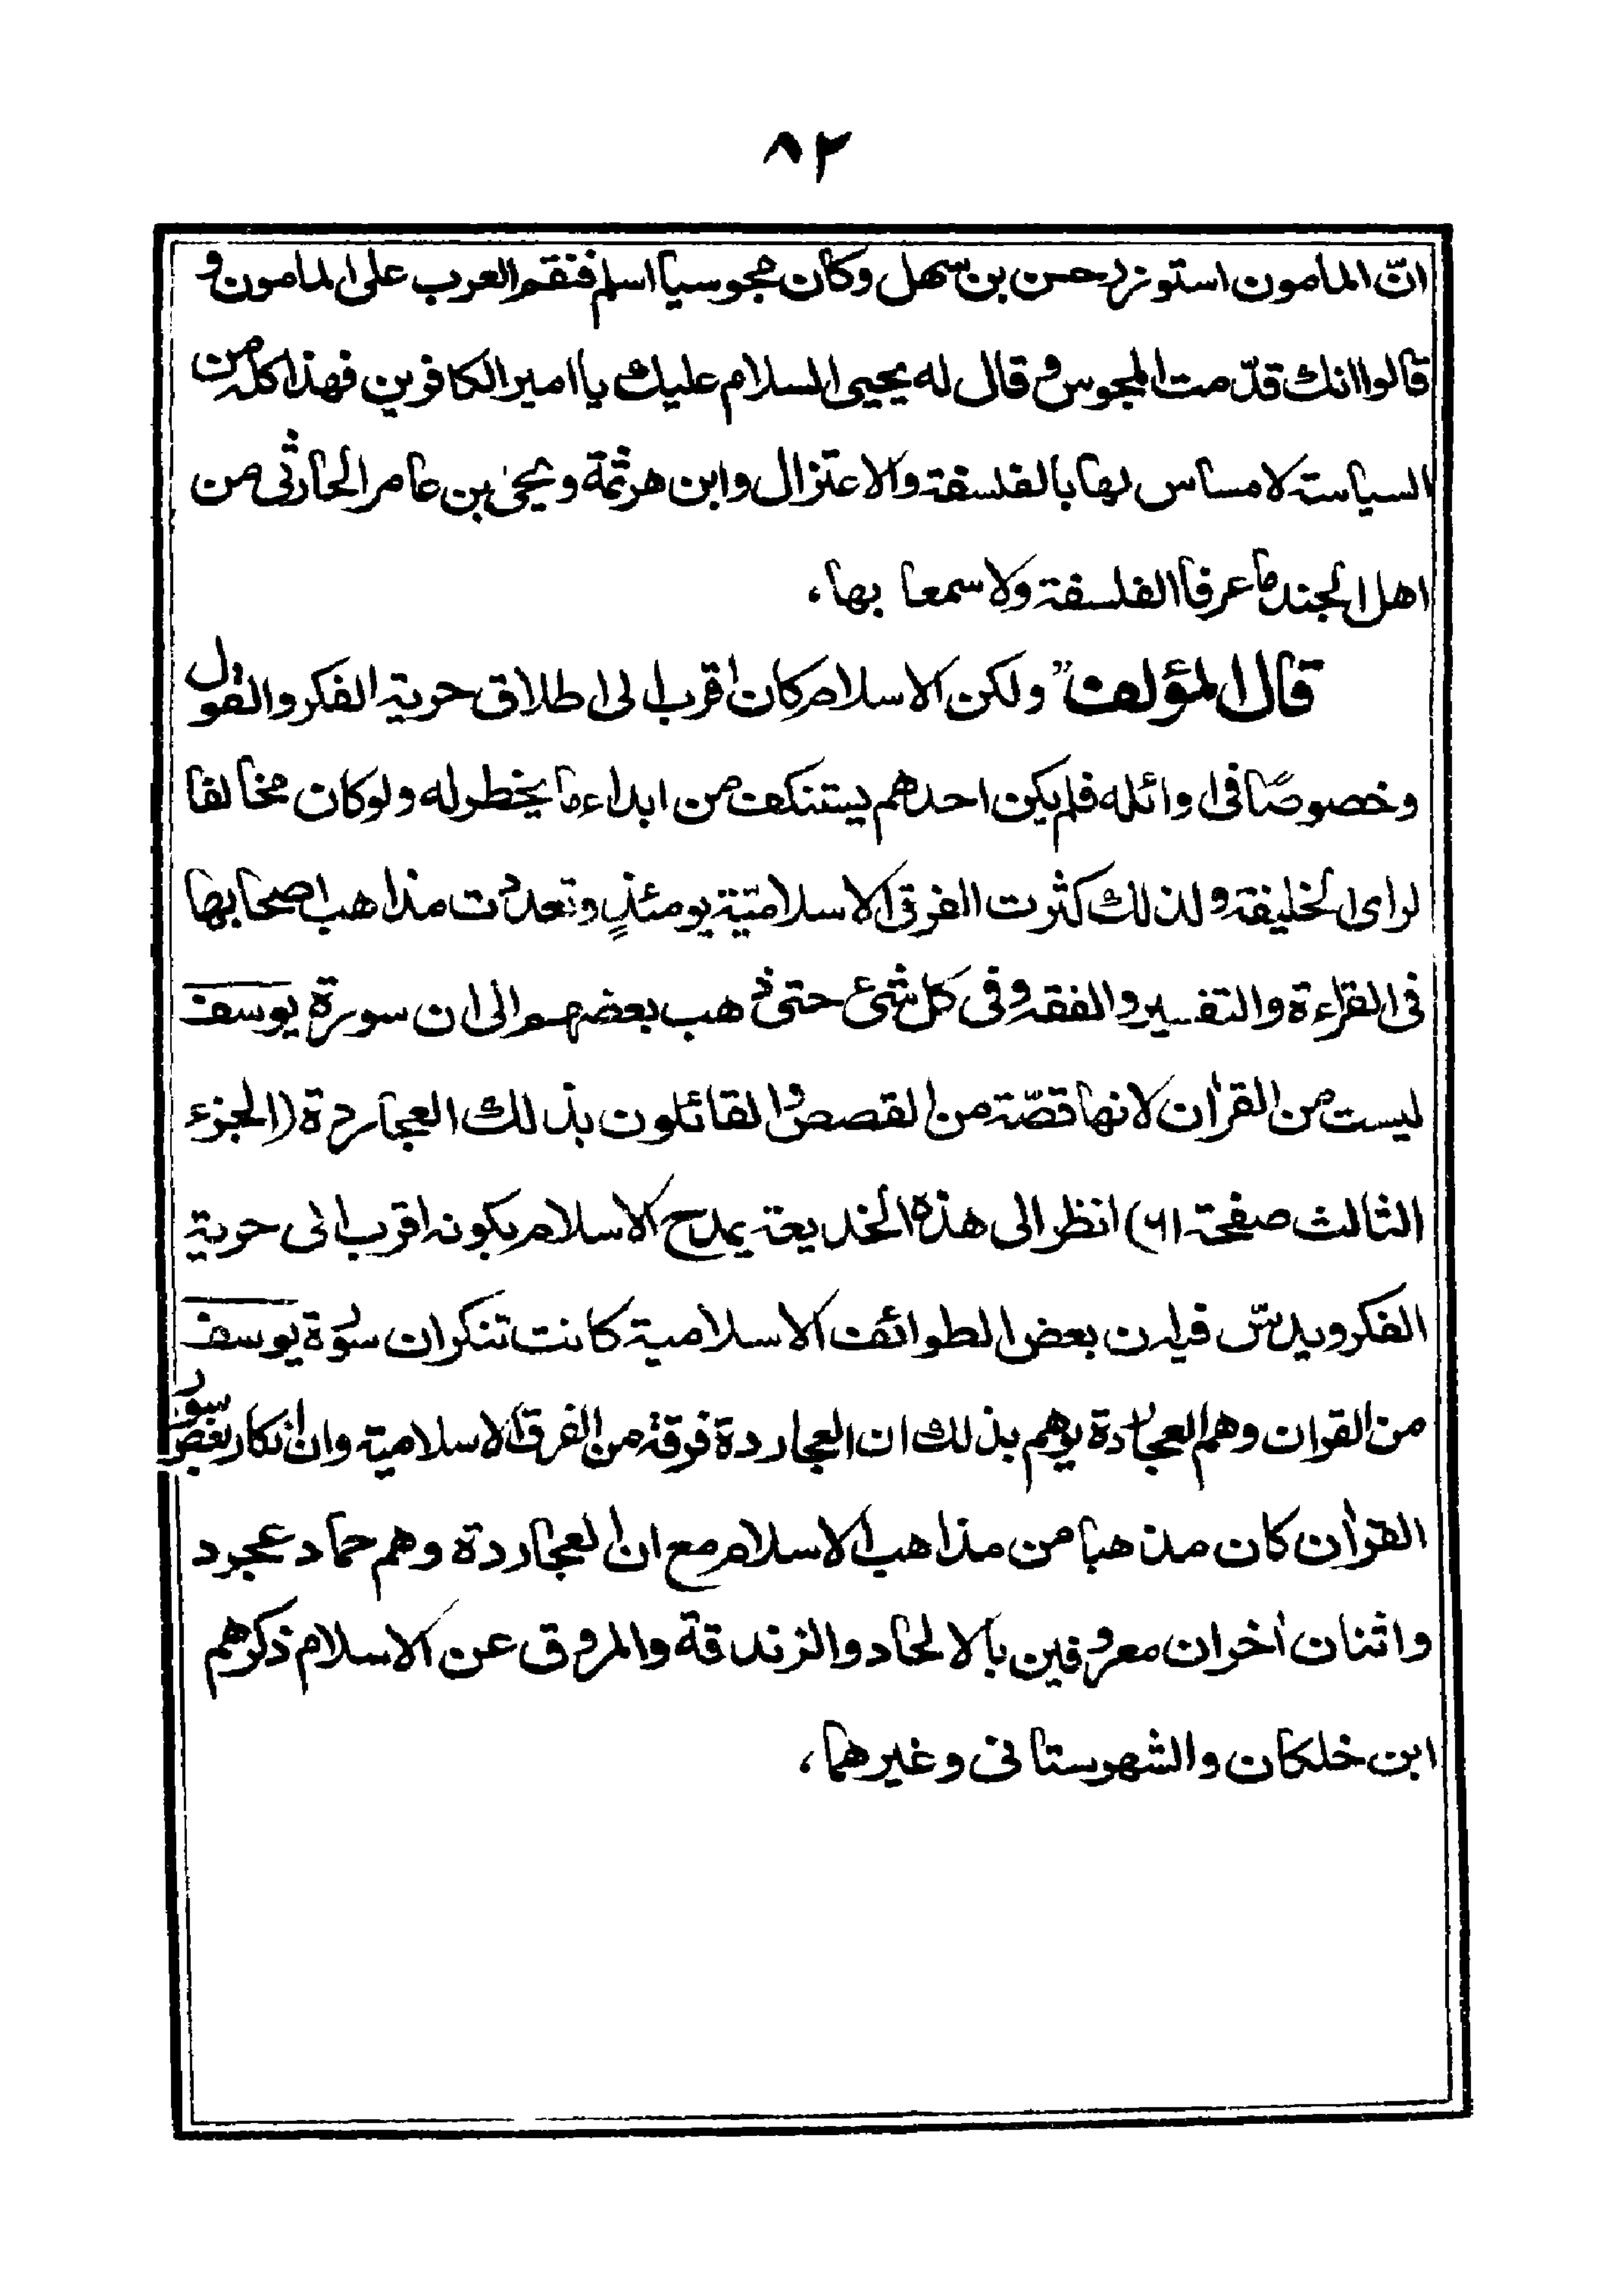 ٨٢
انّ المامون استوزر حسن بن سهل وكان مجوسيا اسلم فنقم العرب على المامون و
قالوا انك قدّمت المجوس و قال له يحيى السلام عليك يا امير الكافرين فهذا كله من
السياسة لا مساس لها بالفلسفة والاعتزال وابن هرثمة ويحيى بن عامر الحارثى من
اهل الجند ما عرفا الفلسفة ولا سمعا بها،
قال المؤلف "ولكن الاسلام كان اقرب الى اطلاق حرية الفكر والقول
وخصوصًا فى اوائله فلم يكن احدهم يستنكف من ابداء ما يخطر له ولو كان مخالفا
لراى الخليفة ولذلك كثرت الفرق الاسلاميّة يومئذٍ وتعددت مذاهب اصحابها
فى القراءة والتفسير والفقه وفى كل شئ حتى ذهب بعضهم الى ان سورة يوسف
ليست من القرأن لانها قصّة من القصص والقائلون بذلك العجاردة (الجزء
الثالث صفحة ٦١) انظر الى هذه الخديعة يمدح الاسلام بكونه اقرب الى حرية
الفكر ويدسّ فيه ان بعض الطوائف الاسلامية كانت تنكر ان سورة يوسف
من القران وهم العجاردة يوهم بذلك ان العجاردة فرقة من الفرق الاسلامية وان انكار بعض سور
القرأن كان مذهبا من مذاهب الاسلام مع ان العجاردة وهم حماد عجرد
واثنان أخران معروفين بالالحاد والزندقة والمروق عن الاسلام ذكرهم
ابن خلكان والشهرستانى وغيرهما،